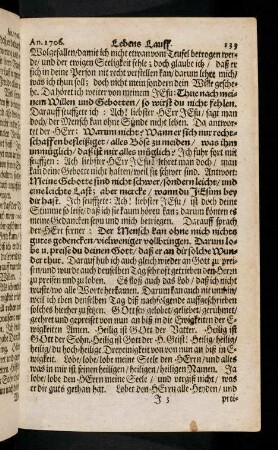 An. 1706. Lebens Lauff. 139
Wolgefallen/damit ich nicht etwan vom Teufel betrogen wer-
de/ und der ewigen Seeligkeit fehle; doch glaube ich / daß er
sich in deine Person nit recht verstellen kan/ darum lehre mich/
was ich thun soll; doch nicht mein sondern dein Wille gesche-
he. Da höret ich weiter von meinem JEsu: Thue nach mei-
nen Willen und Gebotten/ so wirst du nicht fehlen.
Darauff seufftzete ich: Ach! liebster HErr JEsu / sagt man
doch der Mensch kan ohne die Sünde nicht leben. Da antwor-
tet der HErr: Warum nicht? Wann er sich nur recht-
schaffen befleissiget / alles Böse zu meiden / was ihm
unmüglich/ das ist mir alles müglich? Ich fuhr fort mit
seuffzen: Ach liebster HErr JEsu! lehret man doch / man
kan deine Gebotte nicht halten/weil sie schwer sind. Antwort:
Meine Gebotte sind nicht schwer/sondern leicht/ und
eine leichte Last; aber mercke / wann du JEsum bey
dir hast. Ich seuffzete: Ach! liebster JEsu/ ist doch deine
Stimme so leise/ daß ich sie kaum hören kan; darum könten es
meine Gedancken seyn/und mich betriegen. Darauff sprach
der HErr ferner: Der Mensch kan ohne mich nichts
gutes gedencken/ vielweniger vollbringen. Darum lo-
be u. preise du deinen Gott/ daß er an dir solche Wun-
der thue. Darauf hub ich auch gleich wieder an Gott zu prei-
sen/und wurde auch denselben Tag sehr oft getrieben den HErrn
zu preisen und zu loben. Es floß auch das Lob/ daß ich nicht
wuste wo alle Worte herkamen. Darum kan auch nit umhin/
weil ich eben denselben Tag diß nachfolgende aufgeschrieben
solches hierher zu setzen. GOtt sey gelobet/geliebet/geruhmet/
geehret und gepreiset von nun an biß in die Ewigkeiten der E-
wigkeiten Amen. Heilig ist GOtt der Vatter. Heilig ist
GOtt der Sohn. Heilig ist Gott der H. Geist. Heilig/heilig
heilig/ du hoch-heilige Dreyeinigkeit von nun an biß in E-
wigkeit. Lobe/lobe/ lobt meine Seele den HErrn/ und alles
was in mir ist seinen heiligen / heiligen / heiligen Namen. Ja
lobe/lobe den HErrn meine Seele / und vergiß nicht/ was
er dir guts gethan hat. Lobet den HErrn alle Heyden / und
J 3 prei-